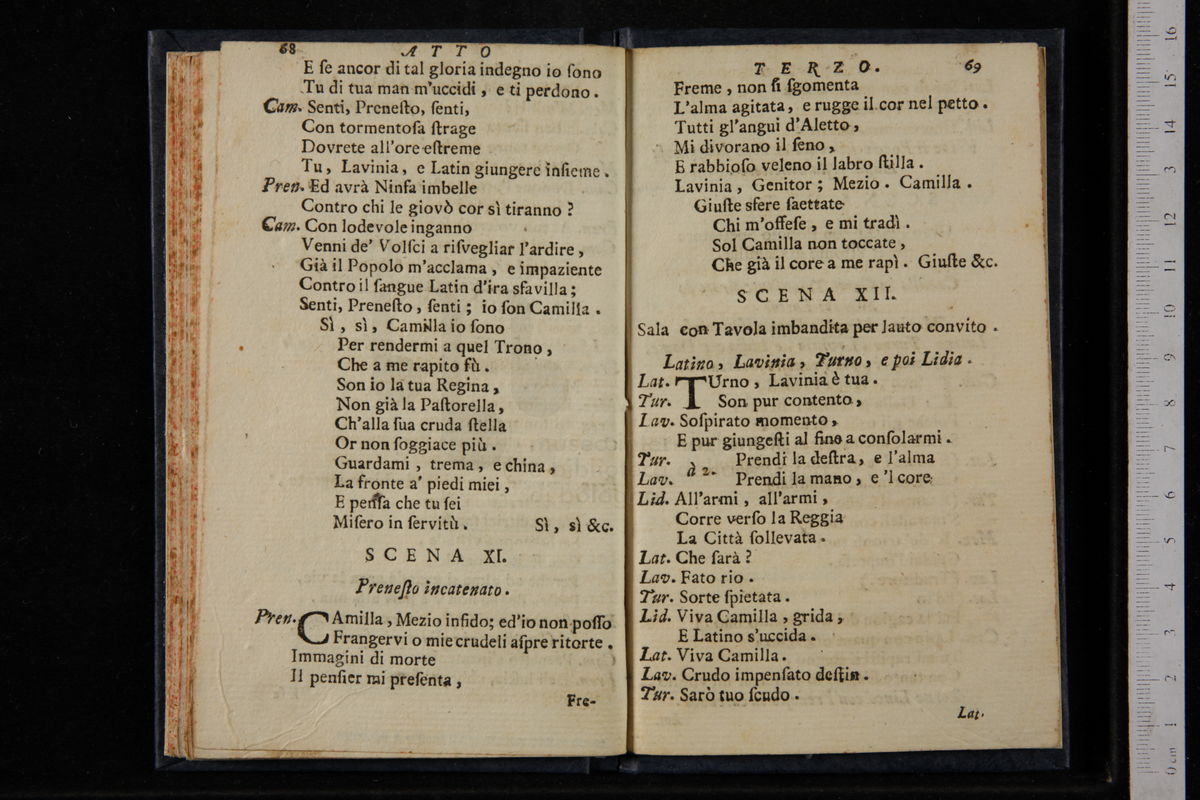 68 ATTO
E ſe ancor di tal gloria indegno io ſono
Tu di tua man m'uccidi, e ti perdono.
Cam. Senti, Preneſto, ſenti,
Con tormentoſa ſtrage
Dovrete all'ore eſtreme
Tu, Lavinia, e Latin giungere inſieme.
Pren. Ed avrà Ninfa imbelle
Contro chi le giovò cor sì tiranno?
Cam. Con lodevole inganno
Venni de' Volſci a riſvegliar l'ardire,
Già il Popolo m'acclama, e impaziente
Contro il ſangue Latin d'ira sfavilla;
Senti, Preneſto, ſenti; io ſon Camilla.
Sì, sì, Camilla io ſono
Per rendermi a quel Trono,
Che a me rapito fù.
Son io la tua Regina,
Non già la Paſtorella,
Ch'alla ſua cruda ſtella
Or non ſoggiace più.
Guardami, trema, e china,
La fronte a' piedi miei,
E penſa che tu ſei
Miſero in ſervitù. Sì, sì &c.
SCENA XI.
Preneſto incatenato.
Pren. CAmilla, Mezio infido; ed'io non poſſo
Frangervi o mie crudeli aſpre ritorte.
Immagini di morte
Il penſier mi preſenta,
Fre-
TERZO. 69
Freme, non ſi ſgomenta
L'alma agitata, e rugge il cor nel petto.
Tutti gl'angui d'Aletto,
Mi divorano il ſeno,
E rabbioſo veleno il labro ſtilla.
Lavinia, Genitor; Mezio. Camilla.
Giuſte sfere ſaettate
Chi m'offeſe, e mi tradì.
Sol Camilla non toccate,
Che già il core a me rapì. Giuſte &c.
SCENA XII.
Sala con Tavola imbandita per lauto convito.
Latino, Lavinia, Turno, e poi Lidia.
Lat. TUrno, Lavinia è tua.
Tur. Son pur contento,
Lav. Soſpirato momento,
E pur giungeſti al fine a conſolarmi.
Tur. à 2. Prendi la deſtra, e l'alma
Lav. Prendi la mano, e 'l core
Lid. All'armi, all'armi,
Corre verſo la Reggia
La Città ſollevata.
Lat. Che ſarà?
Lav. Fato rio.
Tur. Sorte ſpietata.
Lid. Viva Camilla, grida,
E Latino s'uccida.
Lat. Viva Camilla.
Lav. Crudo impenſato deſtin.
Tur. Sarò tuo ſcudo.
Lat.
0 cm 1 2 3 4 5 6 7 8 9 10 11 12 13 14 15 16